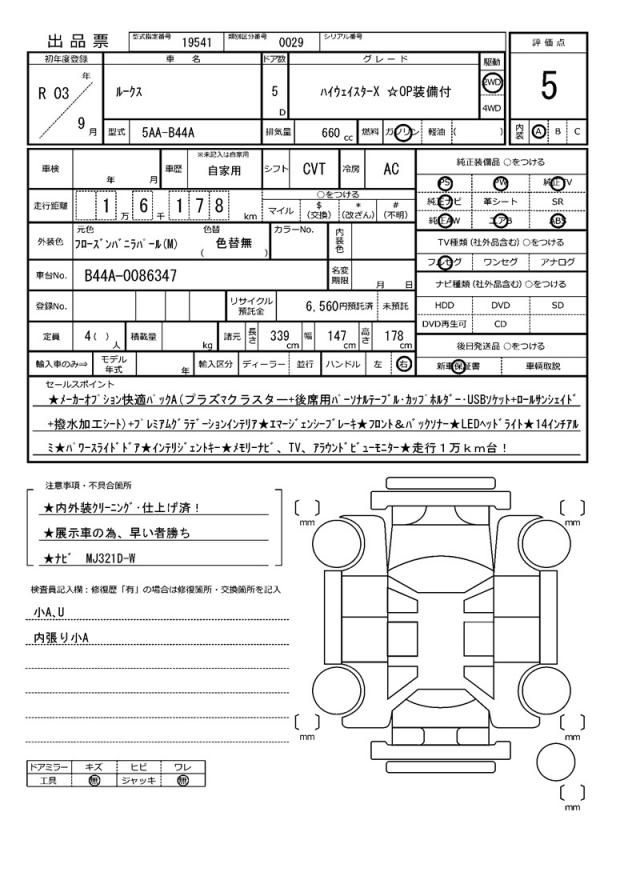 出品票
型式指定番号 19541 類別区分番号 0029 シリアル番号
初年度登録 車名 ドア数 グレード 駆動 評価点
R 03 年 9 月 ルークス 5 D ハイウェイスターX ☆OP装備付 2WD 4WD 5
型式 5AA-B44A 排気量 660 cc 燃料 ガソリン 軽油 ( ) 内装 A B C
車検 年 月 車歴 ※未記入は自家用 自家用 シフト CVT 冷房 AC
走行距離 1 万 6 千 1 7 8 km ○をつける
マイル $ (交換) * (改ざん) # (不明)
外装色 元色 フローズンバニラパール(M) 色替 色替無 ( ) カラーNo. 内装色
車台No. B44A-0086347 名変期限 月 日
登録No. リサイクル預託金 6,560円預託済 未預託
定員 4 ( ) 人 積載量 kg 諸元 長さ 339 cm 幅 147 cm 高さ 178 cm
輸入車のみ⇒ モデル年式 年 輸入区分 ディーラー 並行 ハンドル 左 右
純正装備品 ○をつける
PS PW 純正TV
純正ナビ 革シート SR
純正AW エアB ABS
TV種類 (社外品含む) ○をつける
フルセグ ワンセグ アナログ
ナビ種類 (社外品含む) ○をつける
HDD DVD SD
DVD再生可 CD
後日発送品 ○をつける
新車保証書 車輌取説
セールスポイント
★メーカーオプション快適パックA(プラズマクラスター+後席用パーソナルテーブル・カップホルダー・USBソケット+ロールサンシェイド
+撥水加工シート)+プレミアムグラデーションインテリア★エマージェンシーブレーキ★フロント&バックソナー★LEDヘッドライト★14インチアル
ミ★パワースライドドア★インテリジェントキー★メモリーナビ、TV、アラウンドビューモニター★走行1万km台!
注意事項・不具合箇所
★内外装クリーニング・仕上げ済!
★展示車の為、早い者勝ち
★ナビ MJ321D-W
検査員記入欄:修復歴「有」の場合は修復箇所・交換箇所を記入
小A、U
内張り小A
ドアミラー キズ ヒビ ワレ
工具 無 ジャッキ 無
mm
mm
mm
mm
mm